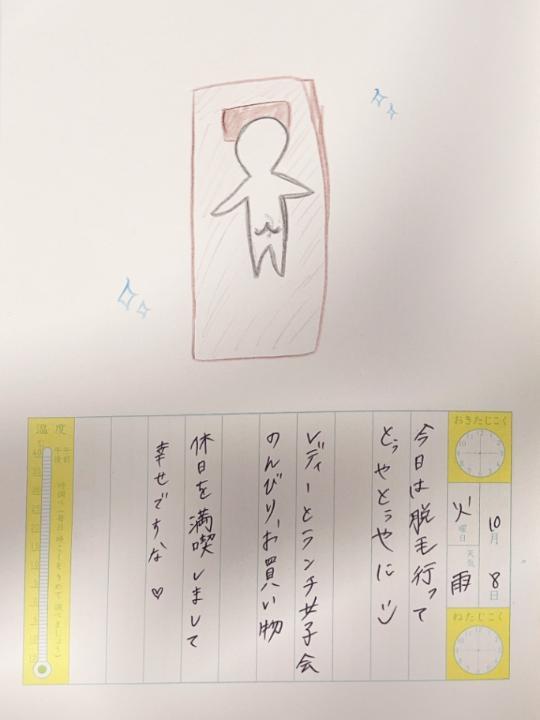 おきたじこく
10月8日
火曜日
天気 雨
ねたじこく
今日は脱毛行って
とぅやとぅやに
レディーとランチ女子会
のんびり、お買い物
休日を満喫しまして
幸せですな♡
温度
午前
午後
時調べ(毎日時こくをきめて調べましょう)
℃